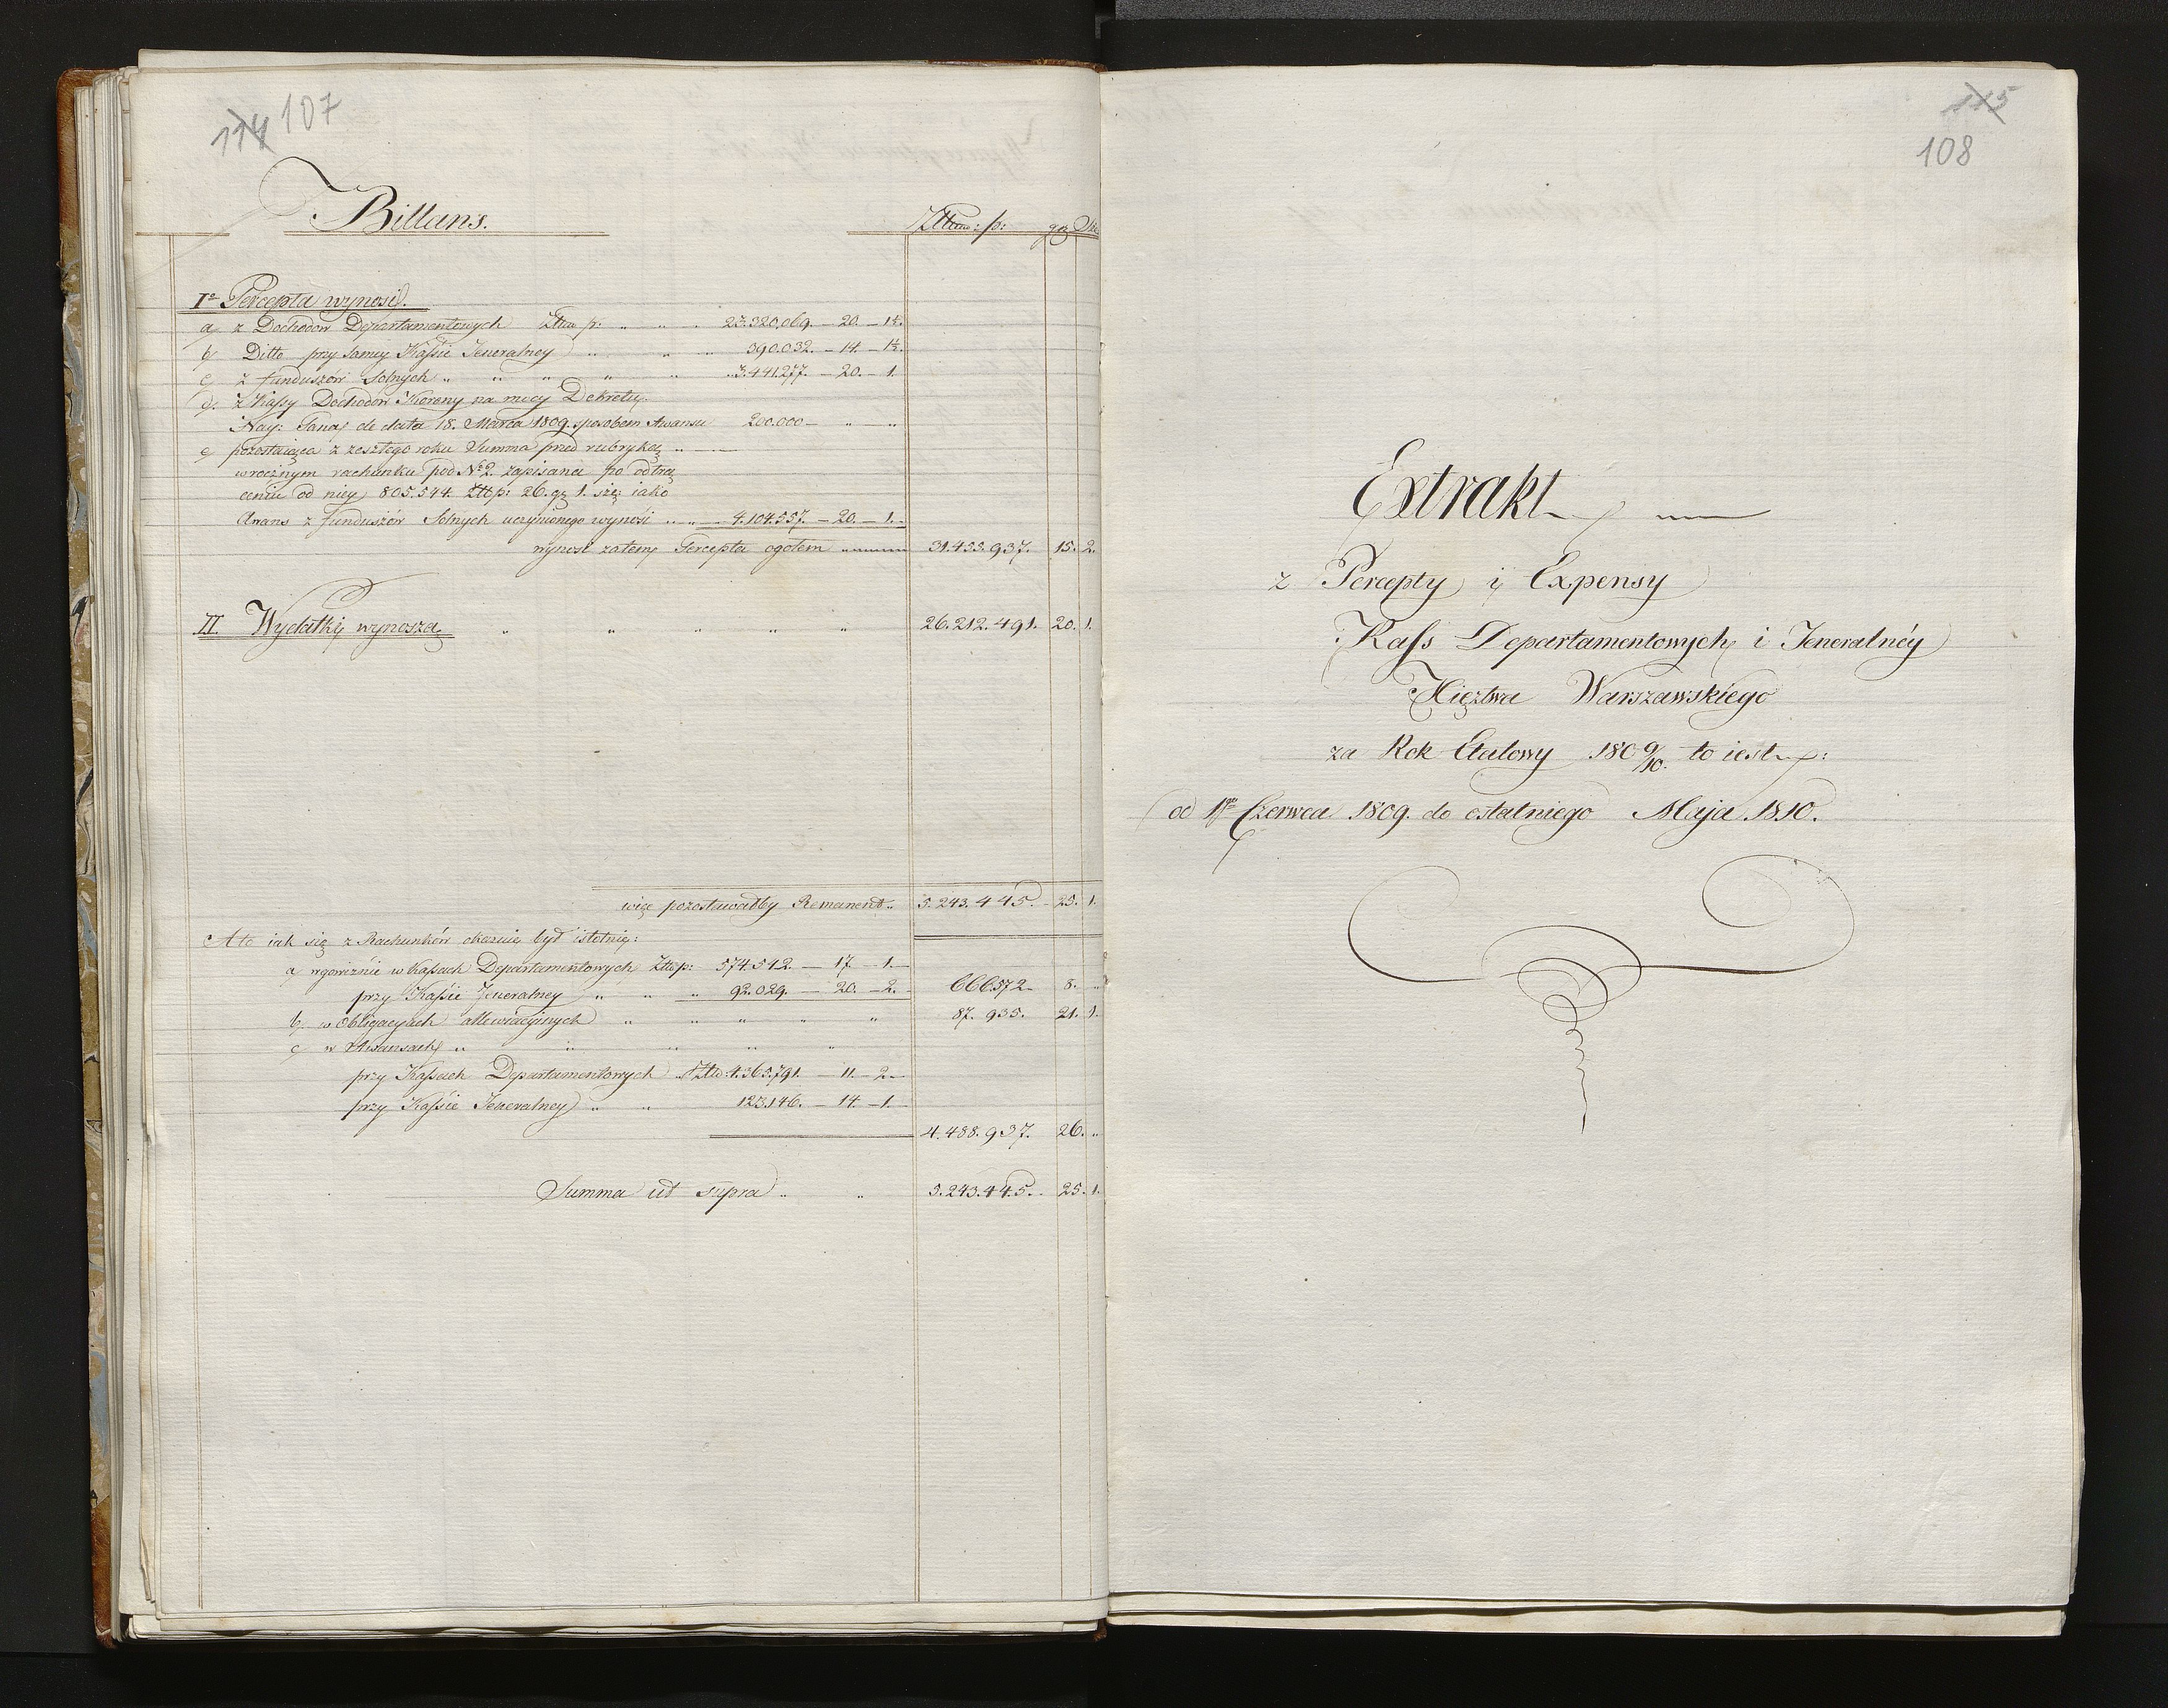 114 107
Billans.
Złtow: p: gr Sz
I° Percepta wynosi.
a, z Dochodow Departamentowych Złtow p: „ „ „ 23.320.069. – 20. – 1½.
b, Ditto przy samey Kaſsie Jeneralney „ „ „ 390.032. – 14. – 1½.
c, z funduszów Solnych „ „ „ „ „ 3.441.277. – 20. – 1.
d, z Kaſsy Dochodów Korony na mocy Dekretu
Nay: Pana de dato 18. Marca 1809. sposobem Awansu 200.000 – „ – „
e, pozostaiąca z zeszłego roku Summa przed rubryką „ —
w rocznym rachunku pod N° 2. zapisana po odtrą
ceniu od niey 805.544. Złtp: 26. gr 1. szę: iako
Awans z funduszów Solnych uczynionego wynosi „ „ 4.104.557. – 20. – 1.
wynosi zatem Percepta ogołem 31.455.937. 15. 2.
II. Wydatki wynoszą „ „ „ „ „ 26.212.491. 20. 1.
więc pozostawałby Remanent „ 5.243.445. 25. 1.
A to iak się z Rachunków okazuie był istotnie:
a, w gowiźnie w Kaſsach Departamentowych Złtp: 574.542. – 17. – 1.
przy Kaſsie Jeneralney „ „ „ 92.029. – 20. – 2. 666.572. 8. „
b, w Obligacyiach allewiacyinych „ „ „ „ „ 87.935. 21. 1.
c, w Awansach „ „ „ „ „
przy Kaſsach Departamentowych Złtw: 4.365.791. – 11. – 2.
przy Kaſsie Jeneralney „ „ 123.146. – 14. – 1.
4.488.937. 26. „
Summa ut supra „ „ 5.243.445. 25. 1.
115
108
Extrakt
z Percepty i Expensy
Kaſs Departamentowych i Jeneralnéy
Xięztwa Warszawskiego
za Rok Etatowy 1809/10. to iest:
od 1go Czerwca 1809. do ostatniego Maja 1810.